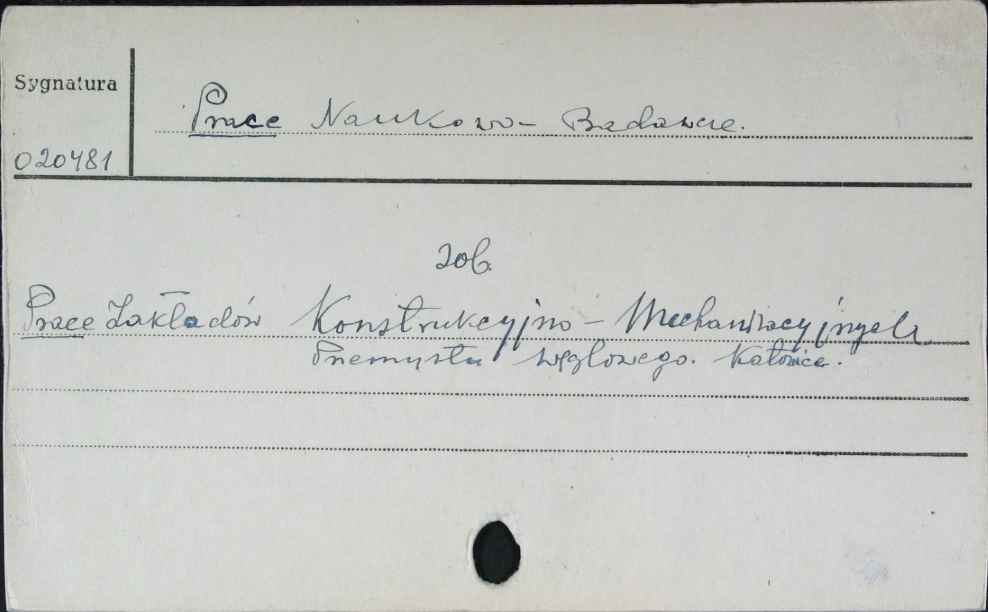 Sygnatura
Prace Naukowo - Badawcze.
020481
zob.
Prace Zakładów Konstrukcyjno - Mechanizacyjnych
Przemysłu Węglowego. Katowice.